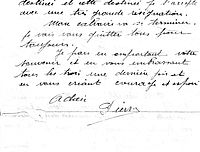 destinée et cette destinée je l'accepte
avec une très grande résignation.
Mon calvaire va se terminer
je vais vous quitter tous pour
toujours.
Je pars en emportant votre
souvenir et en vous embrassant
tous les trois une dernière fois et
en vous criant courage et espoir
Adieu
Pierre